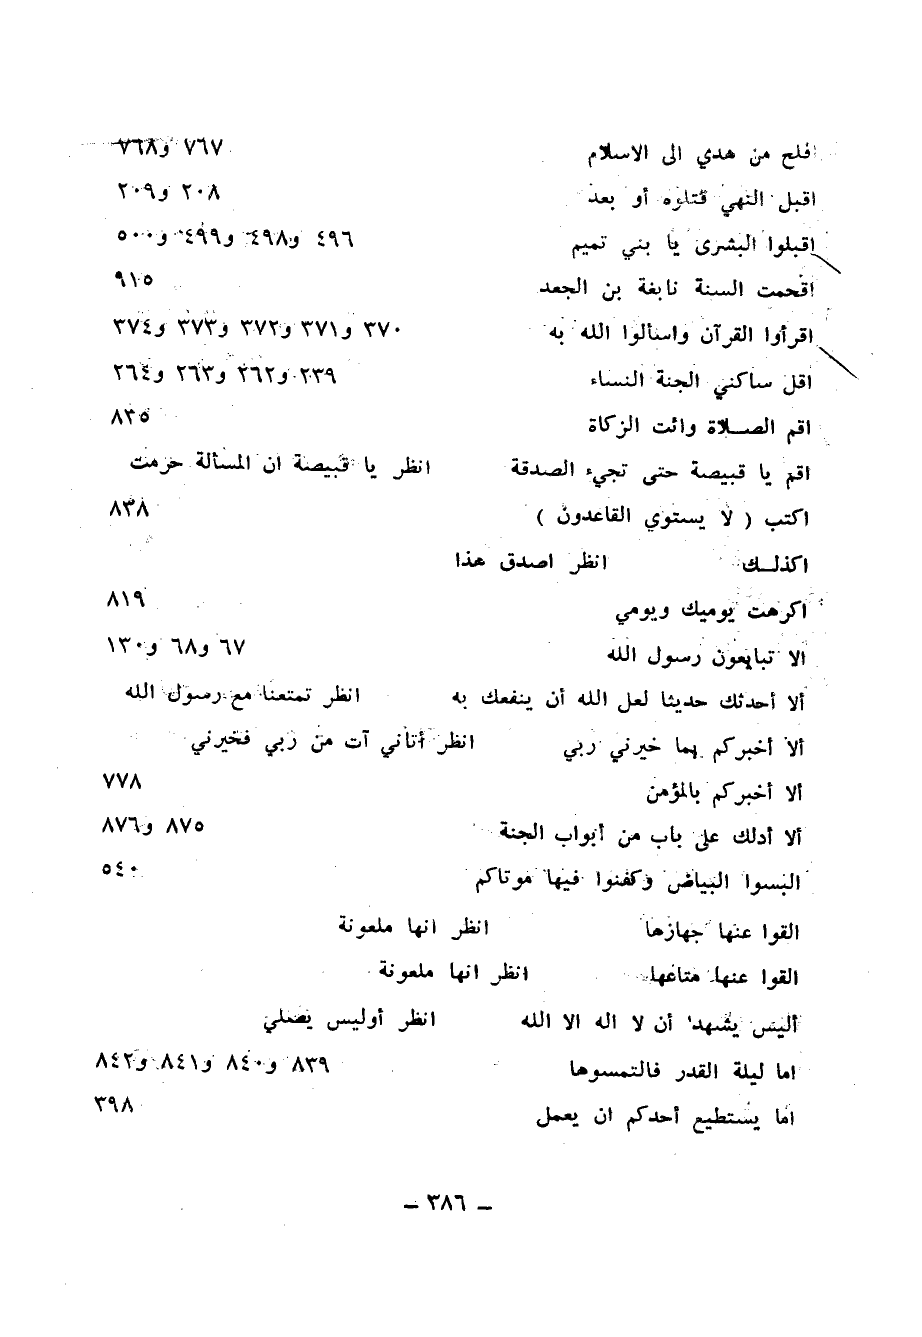 افلح من هدي الى الاسلام ٧٦٧ و٧٦٨
اقبل النهي قتلوه أو بعد ٢٠٨ و٢٠٩
اقبلوا البشرى يا بني تميم ٤٩٦ و٤٩٨ و٤٩٩ و٥٠٠
اقحمت السنة نابغة بن الجعد ٩١٥
اقرأوا القرآن واسألوا الله به ٣٧٠ و٣٧١ و٣٧٢ و٣٧٣ و٣٧٤
اقل ساكني الجنة النساء ٢٣٩ و٢٦٢ و٢٦٣ و٢٦٤
اقم الصلاة وائت الزكاة ٨٣٥
اقم يا قبيصة حتى تجيء الصدقة انظر يا قبيصة ان المسألة حرمت
اكتب ( لا يستوي القاعدون ) ٨٣٨
اكذلك انظر اصدق هذا
اكرهت يوميك ويومي ٨١٩
الا تبايعون رسول الله ٦٧ و٦٨ و١٣٠
ألا أحدثك حديثا لعل الله أن ينفعك به انظر تمتعنا مع رسول الله
ألا أخبركم بما خيرني ربي انظر أتاني آت من ربي فخيرني
ألا أخبركم بالمؤمن ٧٧٨
ألا أدلك على باب من أبواب الجنة ٨٧٥ و٨٧٦
البسوا البياض وكفنوا فيها موتاكم ٥٤٠
القوا عنها جهازها انظر انها ملعونة
القوا عنها متاعها انظر انها ملعونة
أليس يشهد أن لا اله الا الله انظر أوليس يصلي
اما ليلة القدر فالتمسوها ٨٣٩ و٨٤٠ و٨٤١ و٨٤٢
اما يستطيع أحدكم ان يعمل ٣٩٨
– ٣٨٦ –